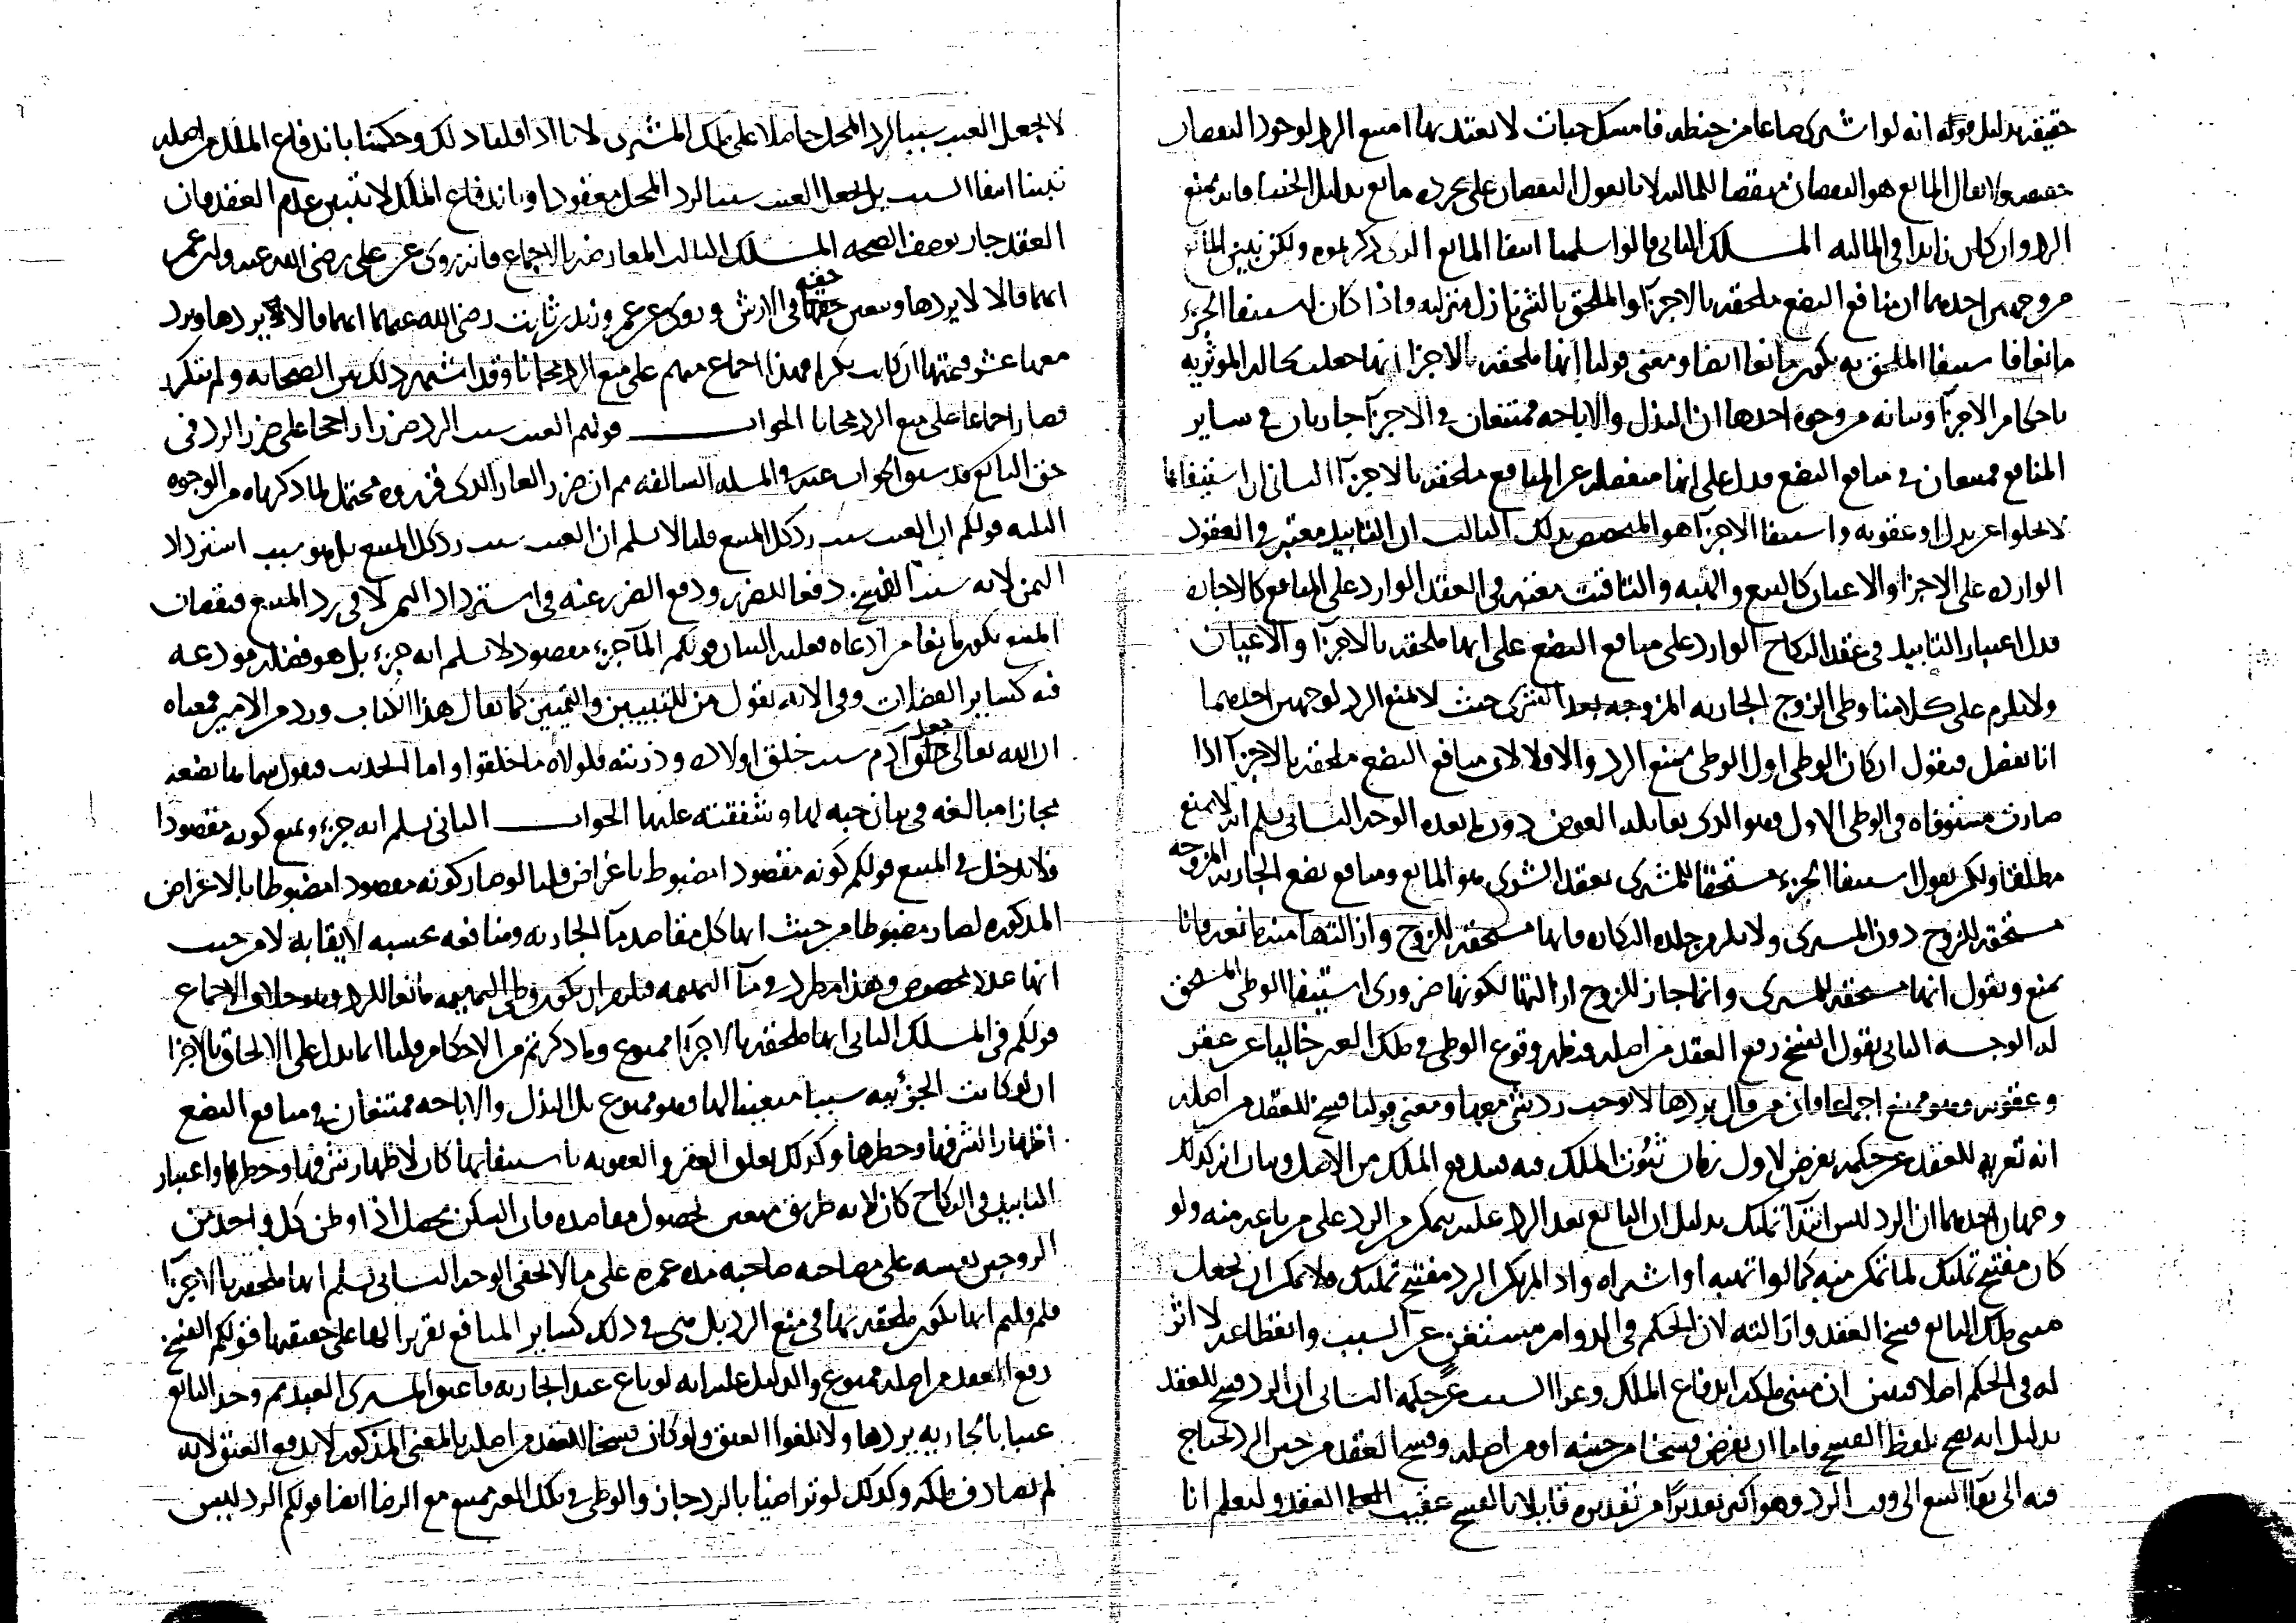 حقيقة بدليل قوله انه لو اشترى صاعا من حنطه فامسك حبات لا يعتد بها امتنع الرد لوجود النقصان
حقيقه ولا يقال المانع هو النقصان منقصا للماليه لانا نقول النقصان على مجرده مانع بدليل الخصا فانه يمنع
الرد وان كان زايدا في الماليه المسلك الثاني قالوا سلمنا انتفا المانع الذي ذكرتموه ولكن نبين المانع
من وجهين احدهما ان منافع البضع ملحقه بالاجزا والملحق بالشي نازل منزلته واذا كان استيفا الجزء
مانعا فاستيفا الملحق به يكون مانعا ايضا ومعنى قولنا انها ملحقه بالاجزا انها جعلت كحاله الموثريه
باحكام الاجزآ وبيانه من وجوه احدها ان البذل والاباحه ممتنعان في الاجزآ جاريان في ساير
المنافع ممتنعان في منافع البضع فدل على انها منفصله عن المنافع ملحقه بالاجزآ الثاني ان استيفاها
لا يخلوا عن بدل او عقوبه واستيفا الاجزآ هو المخصص بذلك الثالث ان التابيد معتبر في العقود
الوارده على الاجزا والاعيان كالبيع والهبه والتاقيت معتبر في العقد الوارد على المنافع كالاجاره
فدل اعتبار التابيد في عقد النكاح الوارد على منافع البضع على انها ملحقه بالاجزآ والاعيان
ولا يلزم على كلامنا وطى الزوج الجاريه المزوجه بعد الشرى حيث لا يمنع الرد لوجهين احدهما
انا نفصل فنقول ان كان الوطى اول الوطى يمنع الرد والا فلا لان منافع البضع ملحقه بالاجزآ اذا
صارت مستوفاه في الوطى الاول وهو الذي يقابله العوض دون ما بعده الوجه الثاني نسلم انه لا يمنع
مطلقا ولكن نقول استيفا الجزء مستحقا للمشترى بعقد الشرى هو المانع ومنافع بضع الجاريه المزوجه
مستحقه للزوج دون المشترى ولا يلزم جلده البكاره فانها مستحقه للزوج وازالتها منه مانعه فانا
نمنع ونقول انها مستحقه للمشترى وانما جاز للزوج ازالتها لكونها ضروري استيفا الوطى المستحق
له الوجه الثاني نقول الفسخ رفع العقد من اصله فيظهر وقوع الوطى في ملك الغير خاليا عن عقر
وعقوبه وهو ممتنع اجماعا فان من قال بردها لا يوجب رد شي معها ومعنى قولنا فسخ للعقد من اصله
انه تعريه للعقد عن حكمه بعرض لاول زمان ثبوت الملك فيه فيندفع الملك من الاصل وبيان انه كذلك
وجهان احدهما ان الرد ليس ابتدآ تمليك بدليل ان البائع بعد الرد عليه يتمكن من الرد على من باعه منه ولو
كان مفتتح تمليك لما تمكن منه كما لو اتهبه او اشتراه واذا لم يكن الرد مفتتح تمليك فلا يمكن ان يجعل
مبنى ملك البائع فسخ العقد وازالته لان الحكم في الدوام مستغن عن السبب وانقطاعه لا اثر
له في الحكم اصلا فتبين ان مبنى ملكه اندفاع الملك وعرا السبب عن حكمه الثاني ان الرد فسخ للعقد
بدليل انه يصح بلفظ الفسخ فاما ان يفرض فسخا من حينه او من اصله وفسخ العقد من حين الرد يحتاج
فيه الى بقآ البيع الى وقت الرد وهو اكثر تقديرًا من تقديره قابلا بالفسخ عقيب العقد وليعلم انا
لا نجعل العيب سببا لرد المحل حاصلا على ملك المشترى لانا اذا قلنا ذلك وحكمنا باندفاع الملك من اصله
تبينا انتفا السبب بل نجعل العيب سببا لرد المحل معقودا وباندفاع الملك لا نتبين عدم العقد فان
العقد جار بوصف الصحه المسلك الثالث المعارضه بالاجماع فانه روى عن على رضي الله عنه وابن عمر
انهما قالا لا يردها ويتعين حقه في الارش وروى عن عمر وزيد بن ثابت رضي الله عنهما انهما قالا يردها ويرد
معها عشر قيمتها ان كانت بكرا فهذا اجماع منهم على منع الرد مجانا وقد اشتهر ذلك بين الصحابه ولم ينكر
فصار اجماعا على منع الرد مجانا الجواب قولهم العيب سبب الرد ضررا راجحا على ضرر الرد في
حق البائع قد سبق الجواب عنه في المسله السالفه ثم ان ضرر العار الذي قرروه محتمل لما ذكرناه من الوجوه
الثلثه قولكم ان العيب سبب رد كل المبيع قلنا لا نسلم ان العيب سبب رد كل المبيع بل هو سبب استرداد
الثمن لانه سبب الفسخ دفعا للضرر ودفع الضرر عنه في استرداد الثمن لا في رد المبيع فنقصان
المبيع يكون مانعا من ادعاه فعليه البيان قولكم المآ جزء مقصود لا نسلم انه جزء بل هو فضله مودعه
فيه كساير الفضلات وفي الايه نقول من للتبيين والتميين كما يقال هذا الكتاب ورد من الامير فمعناه
ان الله تعالى جعل آدم سبب خلق اولاده وذريته فلولاه ما خلقوا واما الحديث فنقول سماها بضعه
مجازا مبالغه في بيان حبه لها وشفقته عليها الجواب الثاني نسلم انه جزء ونمنع كونه مقصودا
فلا يدخل في المبيع قولكم كونه مقصودا مضبوط باغراض قلنا لو صار كونه مقصودا مضبوطا بالاغراض
المذكوره لصار مضبوطا من حيث انها كل مقاصد مآ الجاريه ومنافعه بحسبه لايقا به لا من حيث
انها عدد مخصوص وهذا مطرد في مآ البهيمه فيلزم ان يكون وطى البهيمه مانعا للرد وهو خلاف الاجماع
قولكم في المسلك الثاني انها ملحقه بالاجزآ ممنوع وما ذكرتم من الاحكام قلنا انما يدل على الالحاق بالاجزا
ان لو كانت الجزئيه سببا متعينا لها وهو ممنوع بل البذل والاباحه ممتنعان في منافع البضع
اظهارا لشرفها وخطرها وكذلك تعلق العقر والعقوبه باستيفايها كان لاظهار شرفها وخطرها واعتبار
التابيد في النكاح كان لانه طريق متعين لحصول مقاصده فان السكن يحصل اذا وطن كل واحد من
الزوجين نفسه على مصاحبه صاحبه مده عمره على ما لا يخفى الوجه الثاني نسلم انها ملحقه بالاجزآ
فلم قلتم انها تكون ملحقه بها في منع الرد بل هي في ذلك كساير المنافع تقريرا لها على حقيقتها قولكم الفسخ
رفع العقد من اصله ممنوع والدليل عليه انه لو باع عبدا بجاريه فاعتق المشترى العبد ثم وجد البائع
عيبا بالجاريه يردها ولا يلغوا العتق ولو كان فسخا للعقد من اصله بالمعنى المذكور لاندفع العتق لانه
لم يصادف ملكه وكذلك لو تراضيا بالرد جاز والوطى في ملك الغير ممتنع مع الرضا ايضا قولكم الرد ليس